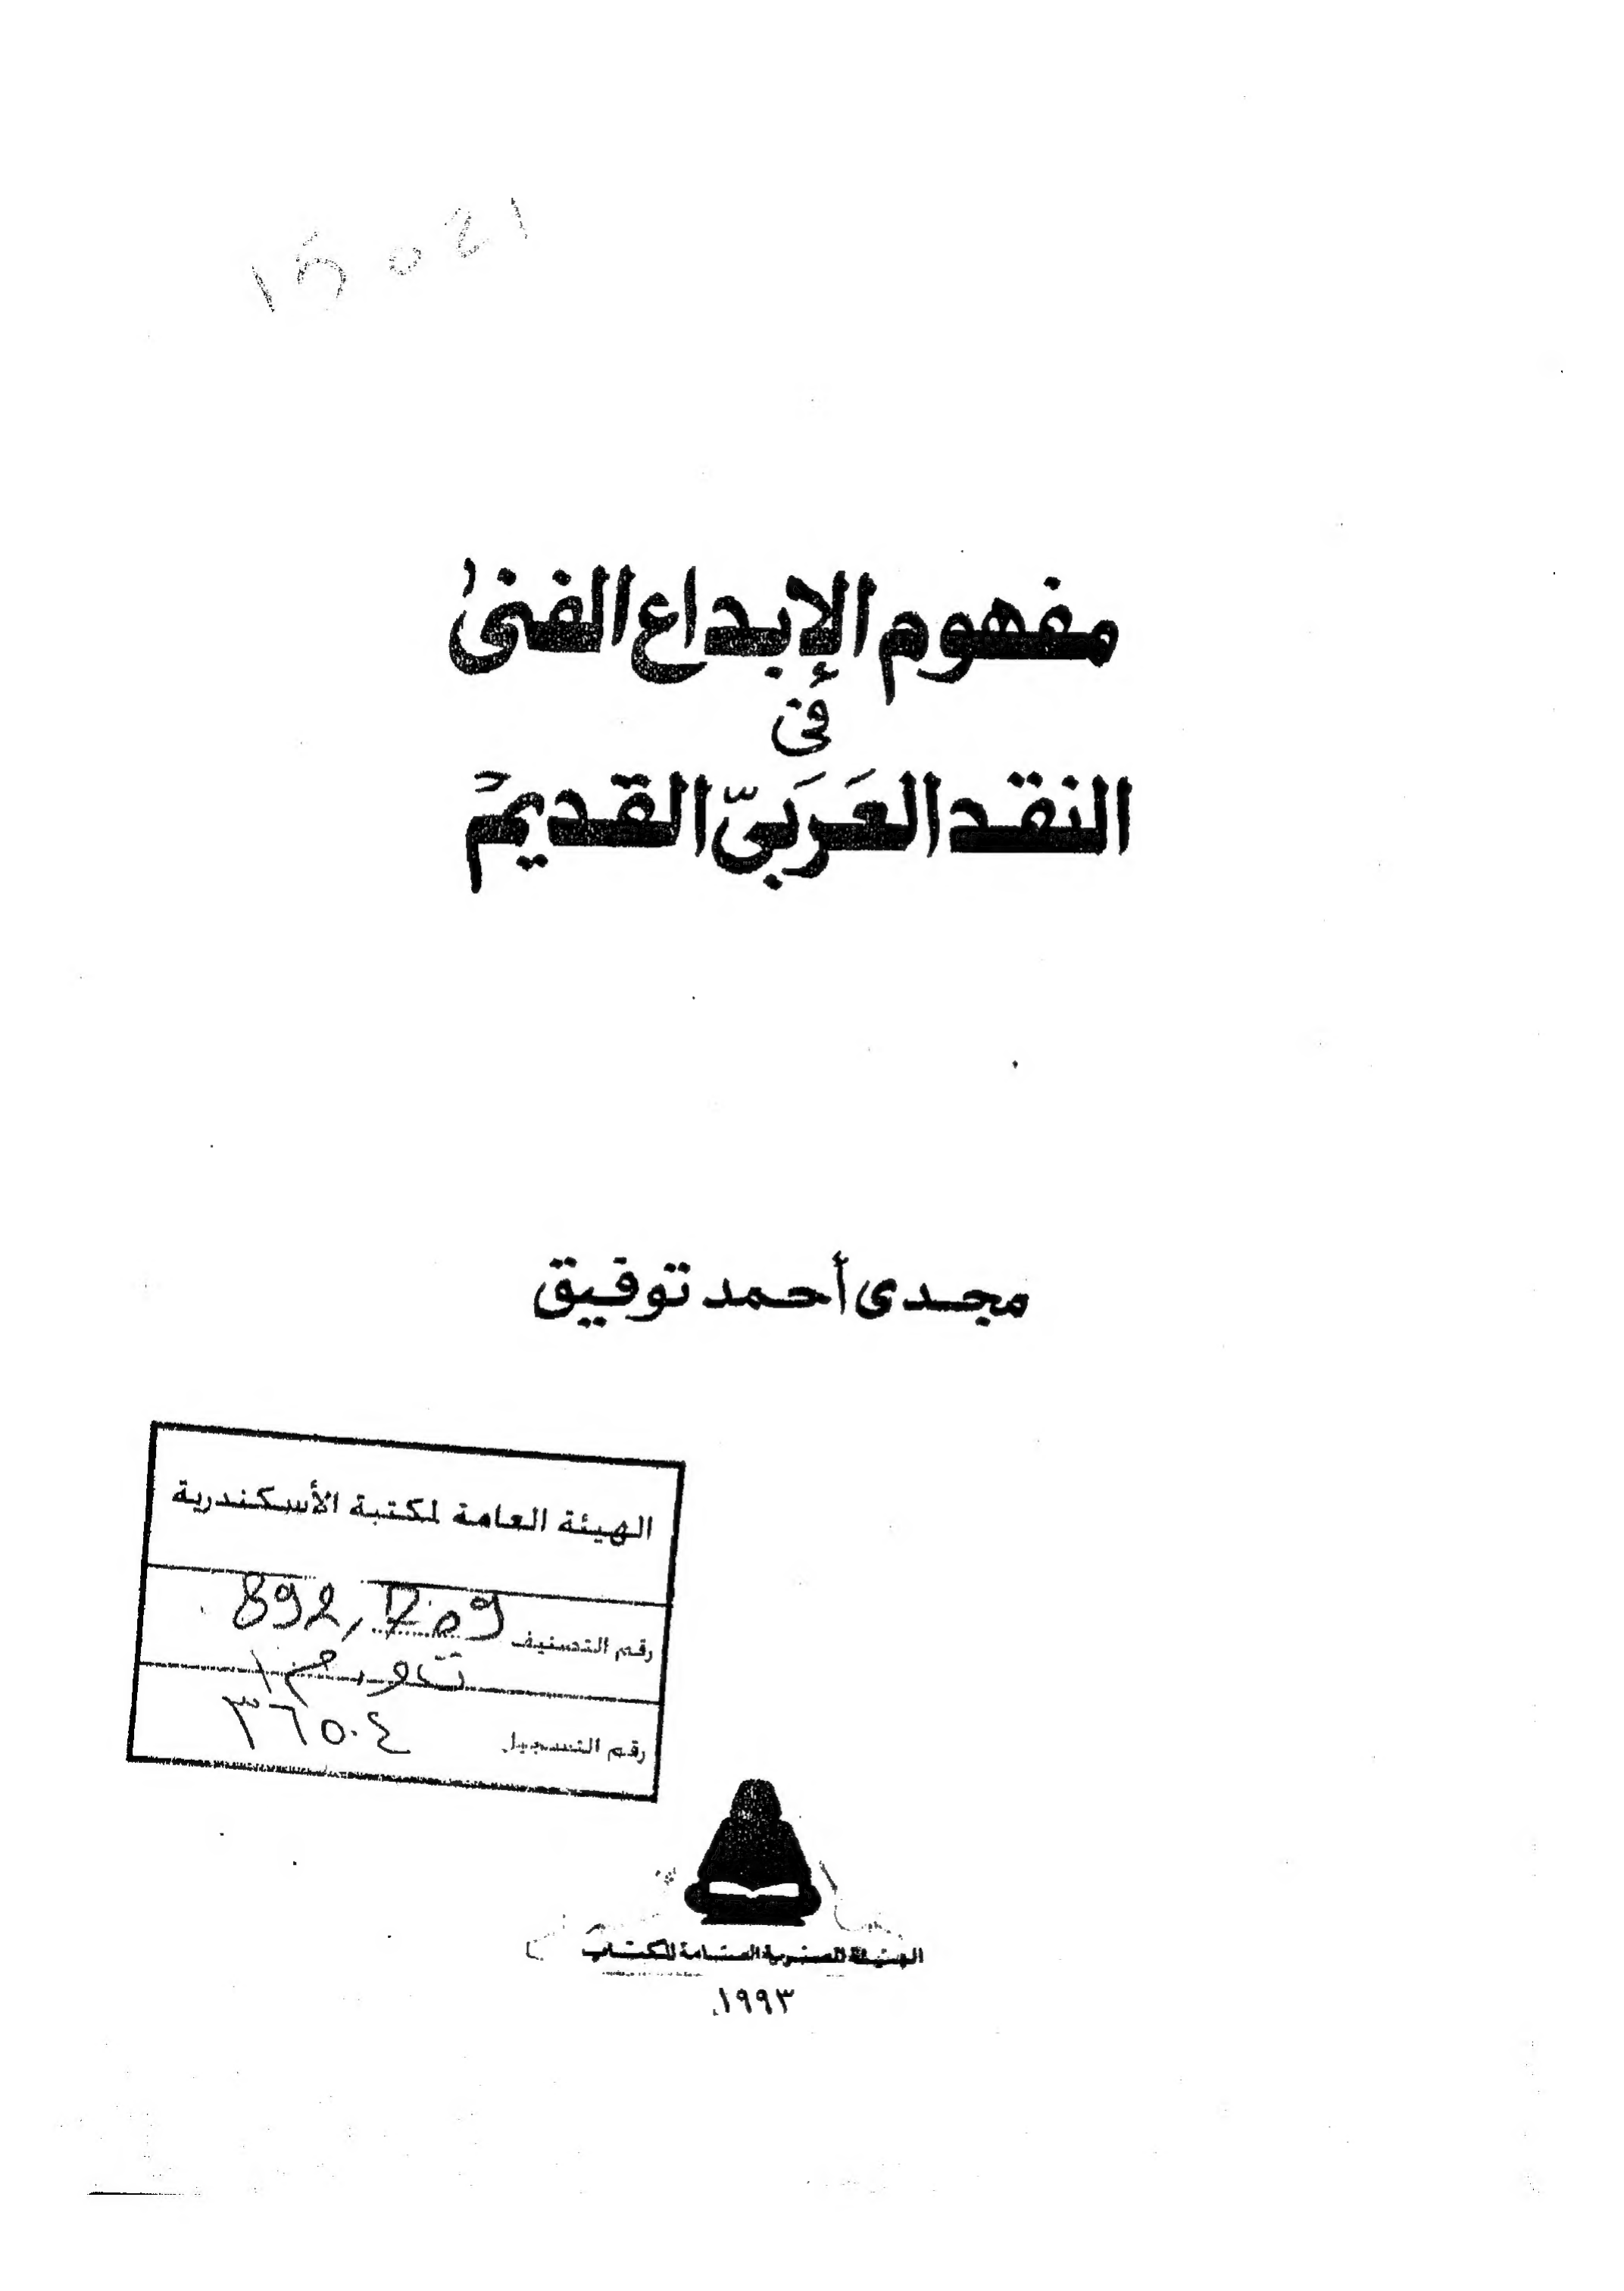 مفهوم الإبداع الفنى
فى
النقد العَرَبىّ القديم
مجدى أحمد توفيق
الهيئة العامة لمكتبة الأسكندرية
رقم التصنيف 892,709
رقم التسجيل ٣٦٥٠٤
الهيئة المصرية العامة للكتاب
١٩٩٣